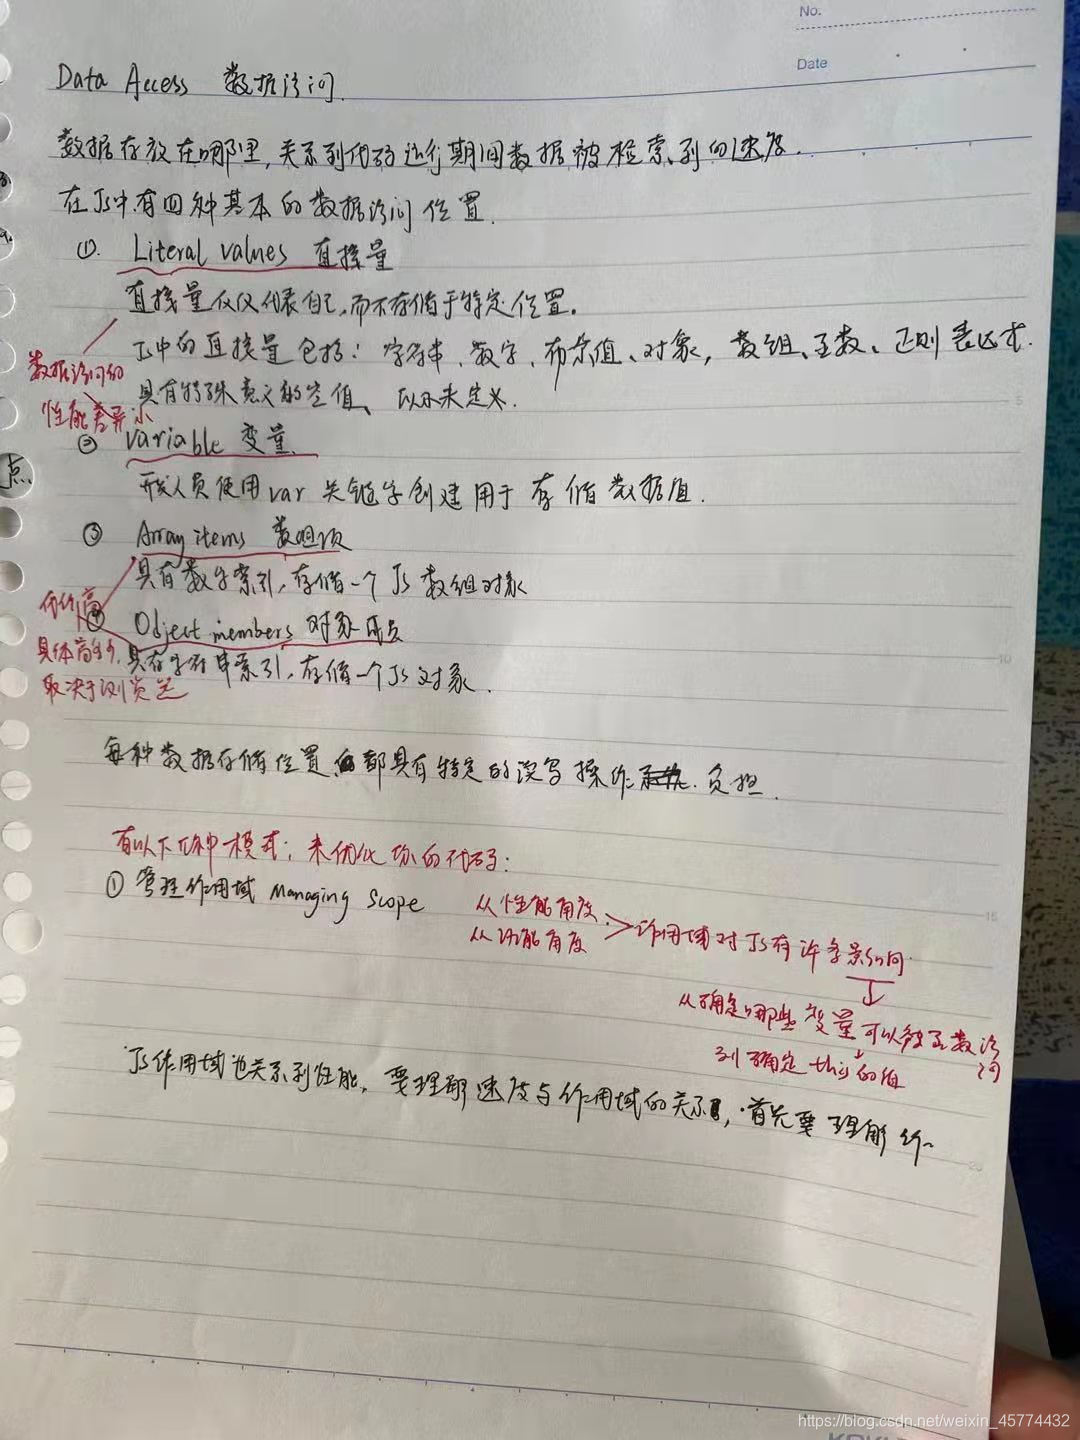 No.
Date
Data Access 数据访问.
数据存放在哪里,关系到代码运行期间数据被检索到的速度.
在JS中,有四种基本的数据访问位置.
①. Literal values 直接量
直接量仅仅代表自己,而不存储于特定位置。
JS中的直接量包括: 字符串、数字、布尔值、对象, 数组、函数、正则表达式.
数据访问的
具有特殊意义的空值、以及未定义.
性能差异小
② Variable 变量.
点
开发人员使用var关键字创建用于存储数据值.
③ Array items 数组项
具有数字索引,存储一个JS数组对象
代价高
④ Object members 对象成员
具体高多少,
具有字符串索引,存储一个JS对象.
取决于浏览器
每种数据存储位置都具有特定的读写操作负担.
有以下几种模式,来优化你的代码:
① 管理作用域 Managing Scope
从性能角度
从功能角度
> 作用域对JS有许多影响
从确定哪些变量可以被函数访问
到确定this的值
JS作用域也关系到性能,要理解速度与作用域的关系,首先要理解作
5
10
15
20
https://blog.csdn.net/weixin_45774432